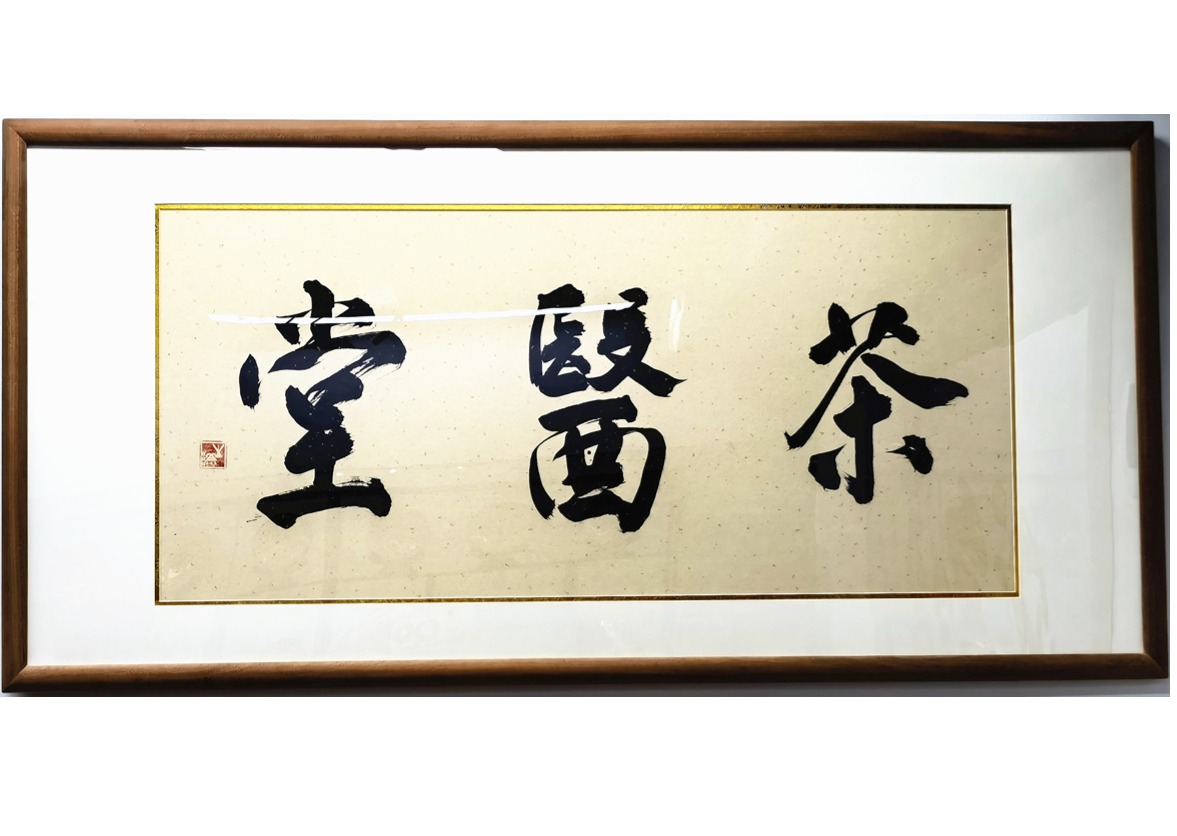 茶醫堂